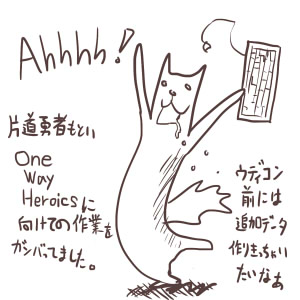 Ahhhh!
片道勇者もとい
One
Way
Heroicsに
向けての作業を
ガンバってました。
ウディコン
前には
追加データ
作りきっちゃい
たいなぁ